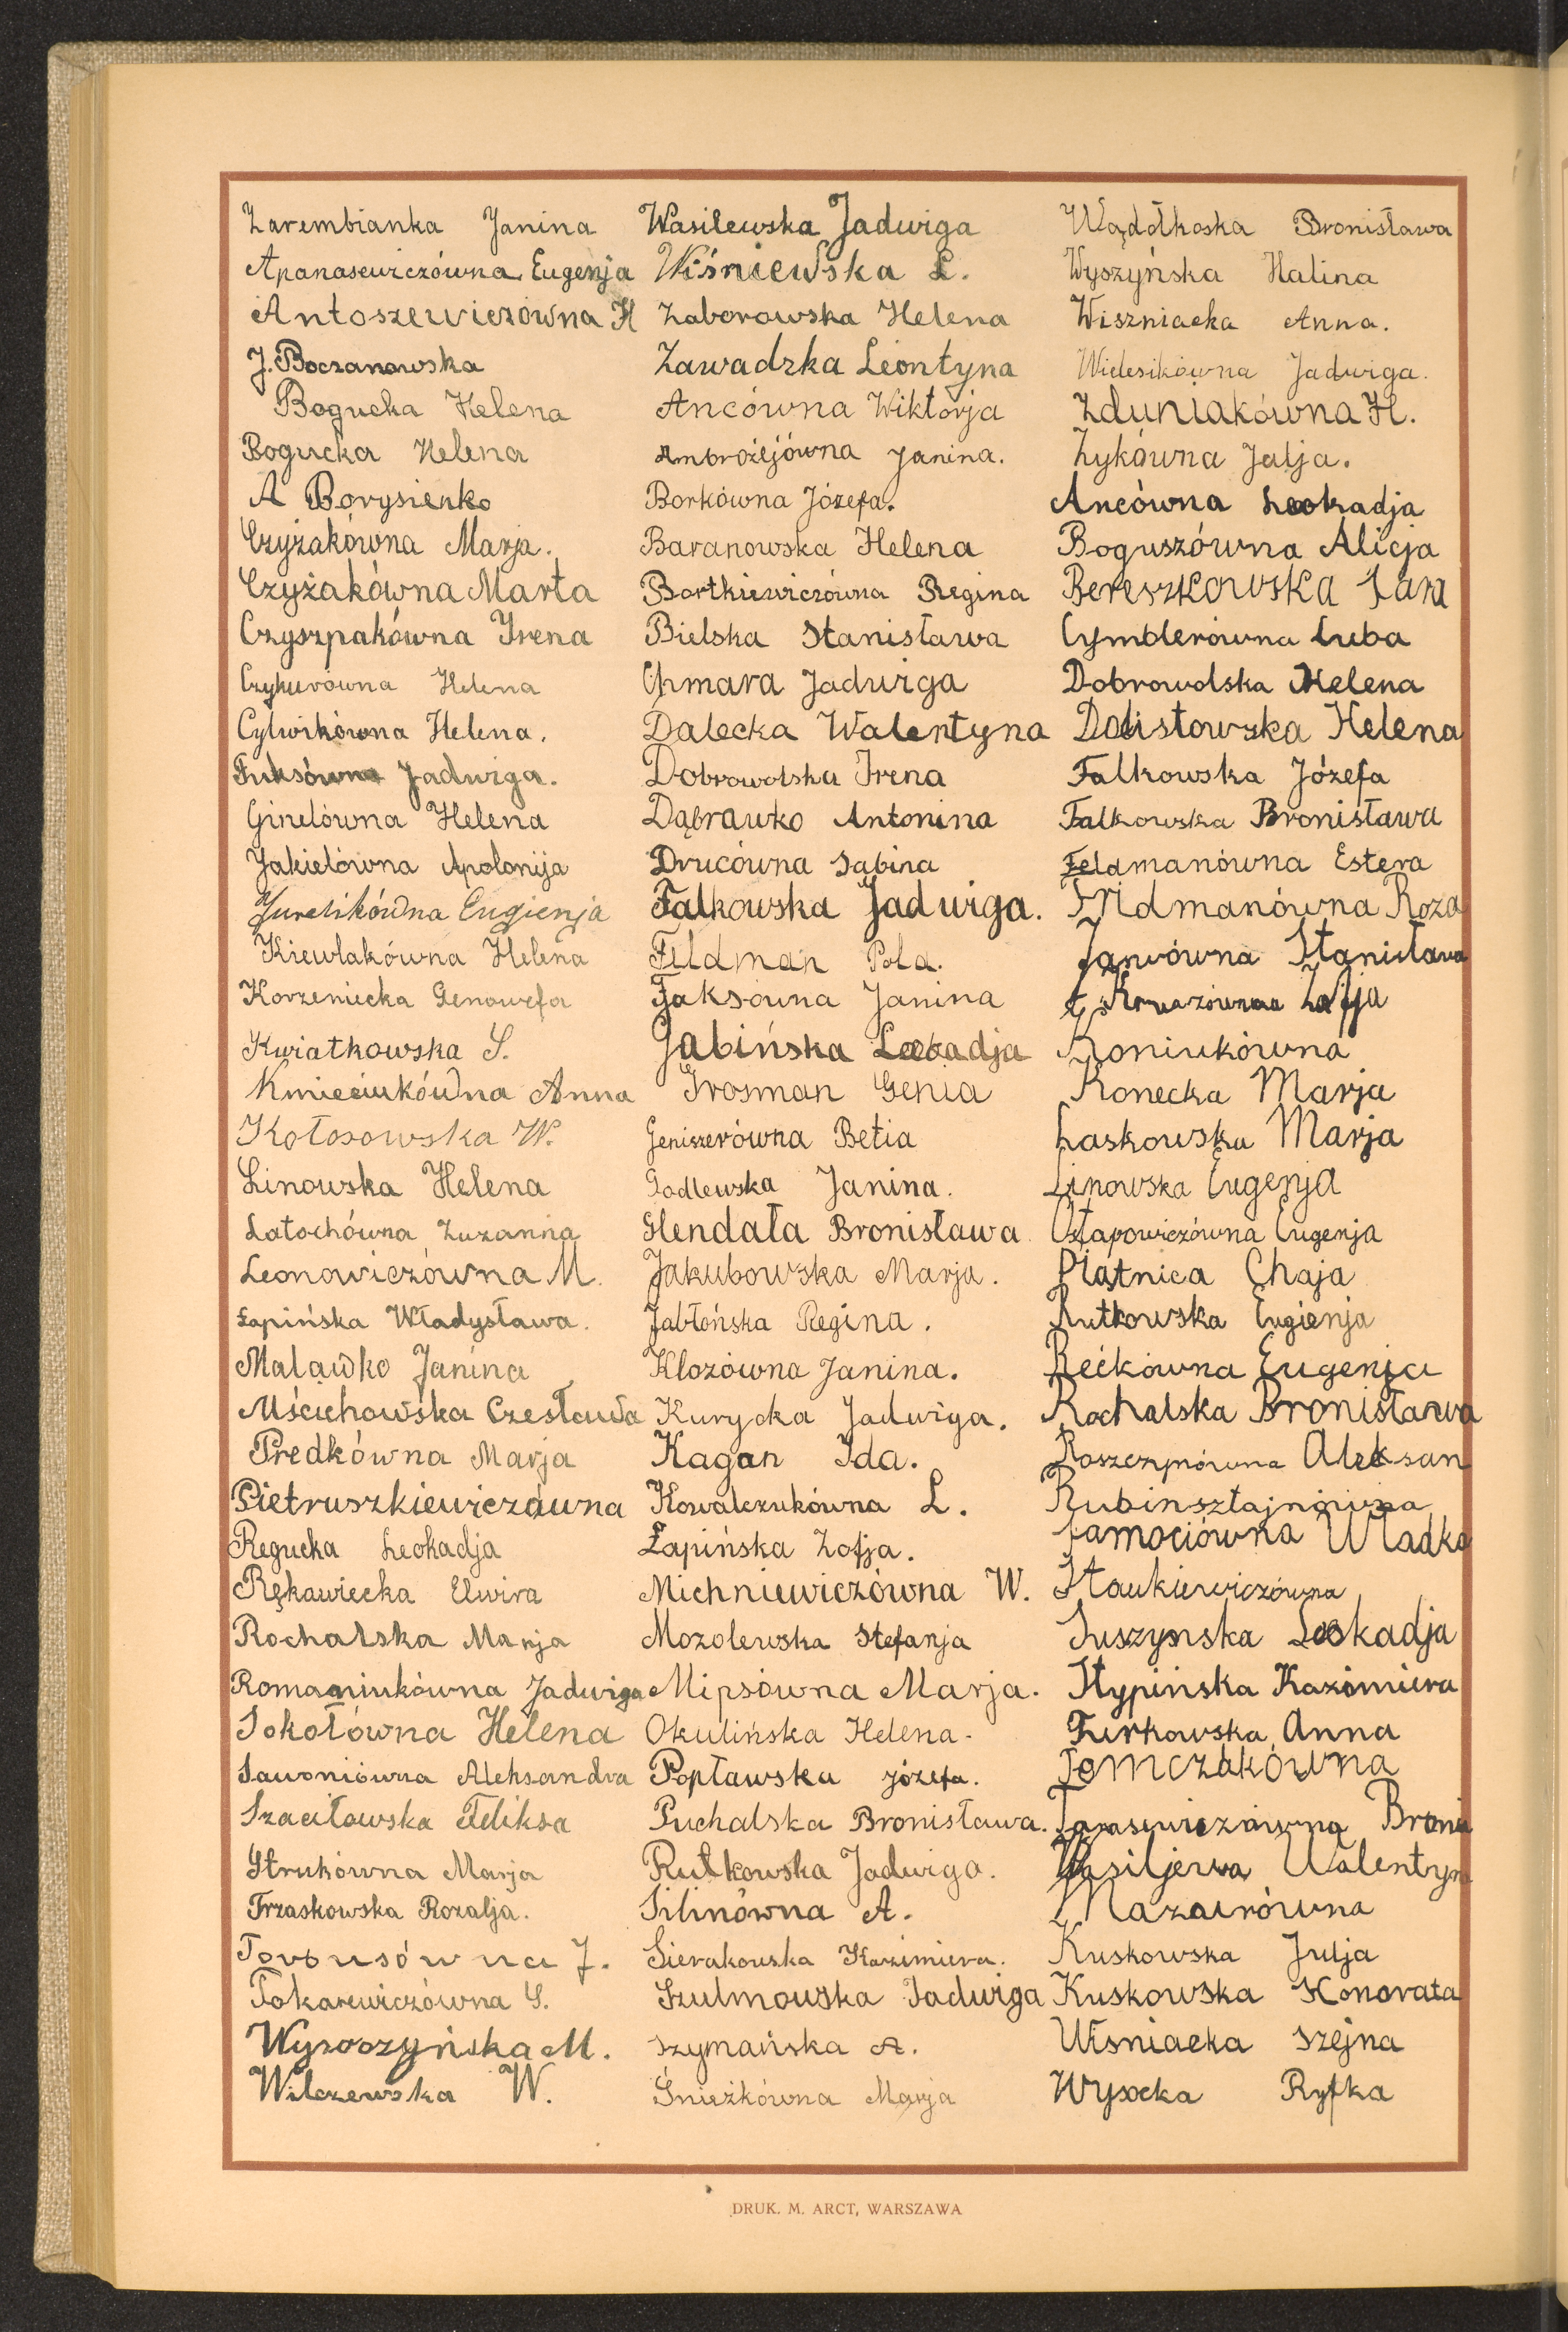 Zarembianka Janina
Apanasewiczówna Eugenja
Antoszewiczówna H
J. Boczanowska
Bogucka Helena
Bogucka Helena
A Borysienko
Czyżakówna Marja.
Czyżakówna Marta
Czyszpakówna Irena
Czykurówna Helena
Cylwikówna Helena.
Fuksówna Jadwiga.
Ginelówna Helena
Jakielówna Apolonija
Jurelikówna Eugienja
Kiewlakówna Helena
Korzeniecka Genowefa
Kwiatkowska S.
Kmieciukówna Anna
Kołosowska W.
Linowska Helena
Latochówna Zuzanna
Leonowiczówna M.
Łapińska Władysława.
Maławko Janina
Mścichowska Czesława
Predkówna Marja
Pietruszkiewiczówna
Regucka Leokadja
Rękawiecka Elwira
Rochalska Marja
Romaniukówna Jadwiga
Sokołówna Helena
Sawoniówna Aleksandra
Szaciłowska Feliksa
Strukówna Marja
Trzaskowska Rozalja.
Torbusówna J.
Tokarewiczówna S.
Wyszoszyńska M.
Wilczewska W.
Wasilewska Jadwiga
Wiśniewska L.
Zaborowska Helena
Zawadzka Leontyna
Ancówna Wiktorja
Ambrożejówna Janina.
Borkówna Józefa.
Baranowska Helena
Bartkiewiczówna Regina
Bielska Stanisława
Chmara Jadwiga
Dalecka Walentyna
Dobrowolska Irena
Dąbrawko Antonina
Drucówna Sabina
Falkowska Jadwiga.
Feldman Pola.
Faksówna Janina
Gabińska Leokadja
Grosman Genia
Geniszerówna Betia
Godlewska Janina.
Hendała Bronisława
Jakubowska Marja.
Jabłońska Regina.
Klozówna Janina.
Kurycka Jadwiga.
Kagan Ida.
Kowalczukówna L.
Łapińska Zofja.
Michniewiczówna W.
Mozolewska Stefanja
Mipsówna Marja.
Okulińska Helena.
Popławska Józefa.
Puchalska Bronisława.
Rutkowska Jadwiga.
Silinówna A.
Sierakowska Kazimiera.
Szulmowska Jadwiga
Szymańska A.
Śnieżkówna Marja
Wądołkoska Bronisława
Wyszyńska Halina
Wiszniacka Anna.
Widesikówna Jadwiga.
Zduniakówna H.
Zykówna Julja.
Ancówna Leokadja
Boguszówna Alicja
Bereszkowska
Cymblerówna Luba
Dobrowolska Helena
Dolistowska Helena
Falkowska Józefa
Falkowska Bronisława
Feldmanówna Estera
Fridmanówna Roza
Stanisława
Zofja
Koniukówna
Konecka Marja
Laskowska Marja
Linowska Eugenja
Ostapowiczówna Eugenja
Piątnica Chaja
Rutkowska Eugienja
Rećkówna Eugenja
Rochalska Bronisława
Roszczynówna Aleksan
Rubinsztajnówna
Samociówna Władka
Stankiewiczówna
Suszynska Leokadja
Stypińska Kazimiera
Turkowska Anna
Tomczakówna
Tarasewiczówna Broni
Wasiljewa Walentyn
Mazurówna
Kuskowska Julja
Kuskowska Honorata
Wiśniacka Szejna
Wysocka Ryfka
DRUK. M. ARCT, WARSZAWA